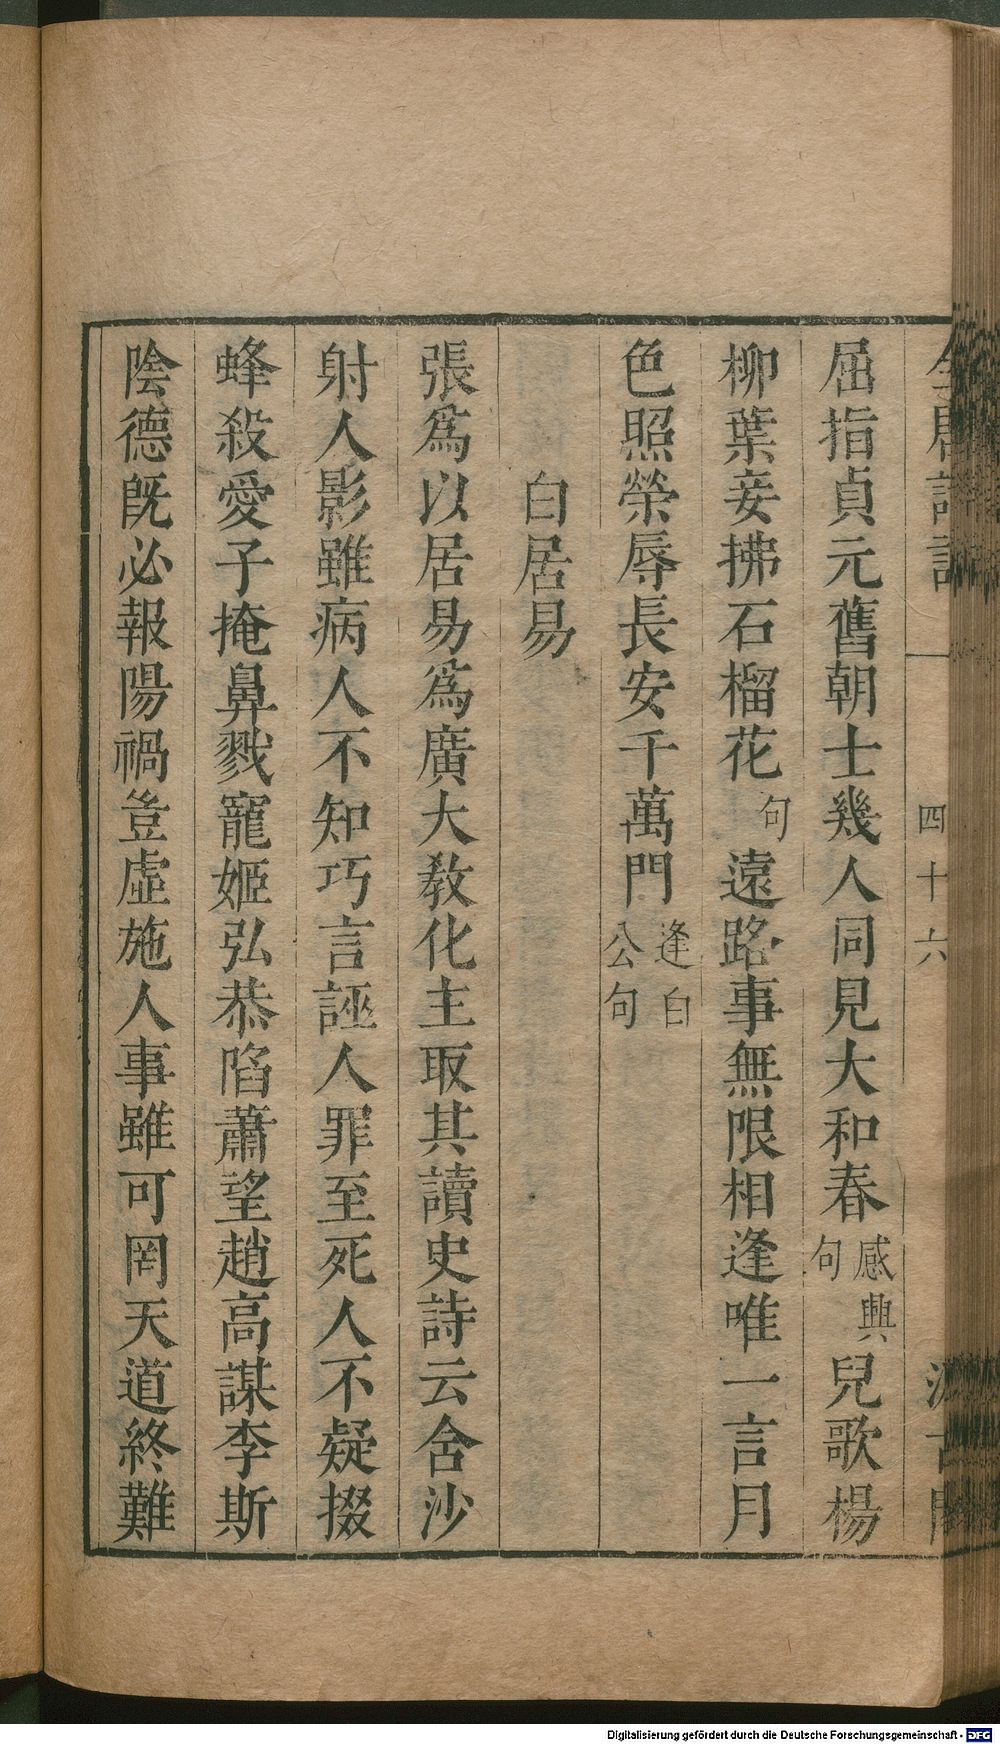 四十六
屈指貞元舊朝士幾人同見大和春感興句兒歌楊
柳葉妾拂石榴花句遠路事無限相逢唯一言月
色照榮辱長安千萬門逢白公句
白居易
張爲以居易爲廣大教化主取其讀史詩云含沙
射人影雖病人不知巧言誣人罪至死人不疑掇
蜂殺愛子掩鼻戮寵姬弘恭陷蕭望趙高謀李斯
陰德既必報陽禍豈虛施人事雖可罔天道終難
Digitalisierung gefördert durch die Deutsche Forschungsgemeinschaft - DFG